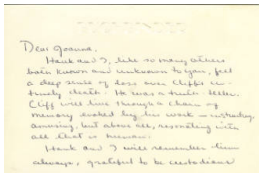 Dear Joanna,
Hank and I, like so many others
both known and unknown to you, feel
a deep sense of loss over Cliff's un-
timely death. He was a truth-teller.
Cliff will live through a chain of
memory evoked by his work —
amusing, but above all, resonating with
all that is human.
Hank and I will remember him
always, grateful to be custodians